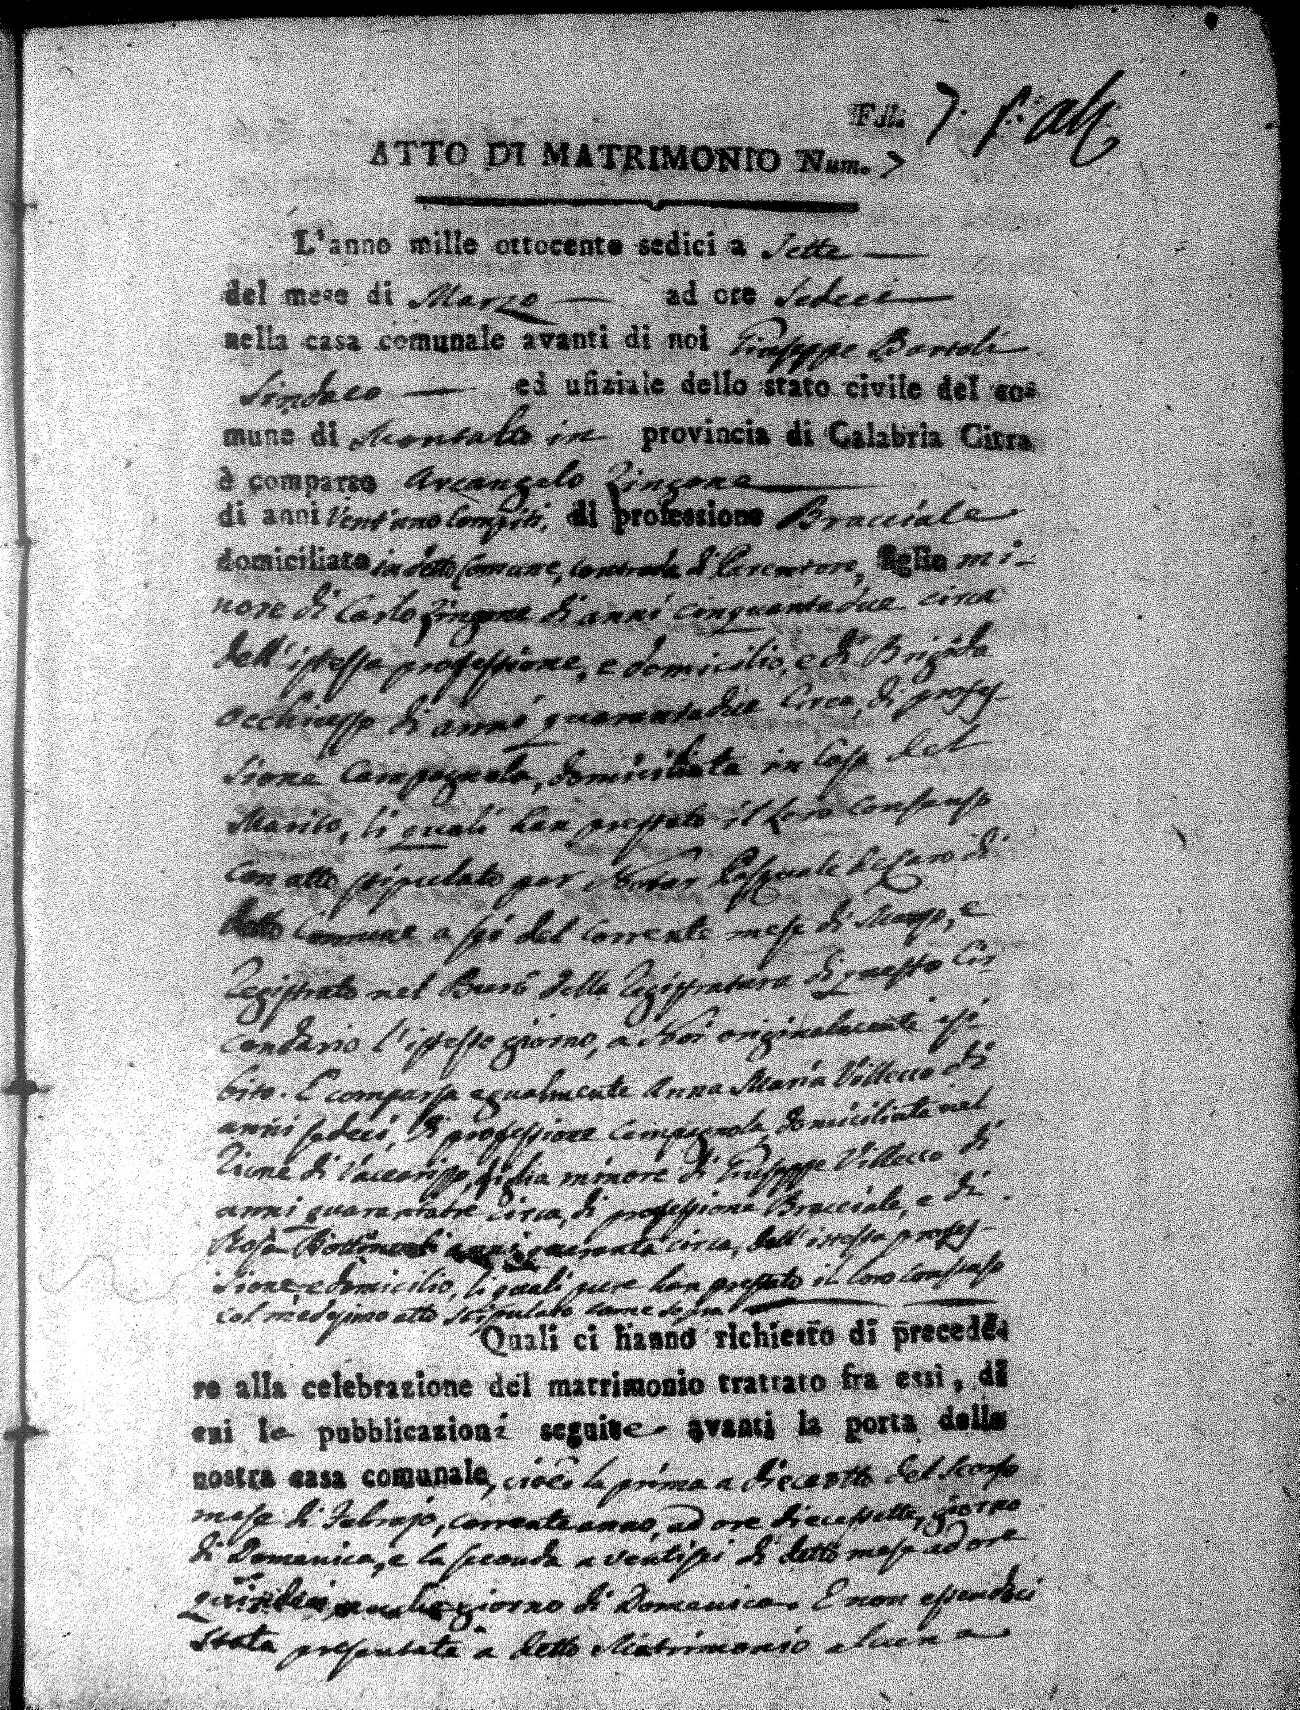 Fol. 7.
ATTO DI MATRIMONIO Num. 7
L'anno mille ottocento sedici a Sette
del mese di Marzo ad ore Sedeci
nella casa comunale avanti di noi Giuseppe Bartoli
Sindaco ed ufiziale dello stato civile del co=
mune di Montalto in provincia di Calabria Citra
è comparso Arcangelo Zingone
di anni Vent'uno Compiti, di professione Bracciale
domiciliato in detto Comune, contrada di figlio mi-
nore di Carlo Zingone di anni cinquantadue circa
dell'istessa professione, e domicilio, e di Brigida
Occhiuzzo di anni quarantadue Circa, di profes-
sione Campagnola, domiciliata in Casa del
Marito, li quali han prestato il loro Consenso
Con atto stipulato per Notar Pasquale di
detto Comune a sei del Corrente mese di Marzo, e
Registrato nel Burò della Registratura di questo Cir-
condario l'istesso giorno, a Noi originalmente esi-
bito. È comparsa egualmente Anna Maria Villecco di
anni sedeci, di professione Campagnola domiciliata nel
Rione di Vaccarizzo, figlia minore di Giuseppe Villecco di
anni quarantatre circa, di professione Bracciale, e di
Rosa anni quaranta circa, dell'istessa profes-
sione, e domicilio, li quali pure han prestato il loro consenso
col medesimo atto stipulato come sopra
Quali ci hanno richiesto di procede-
re alla celebrazione del matrimonio trattato fra essi, di
cui le pubblicazioni seguite avanti la porta della
nostra casa comunale, cioè la prima a dieciotto del scorso
mese di Febrajo, corrente anno, ad ore dieciassette, giorno
di Domenica, e la seconda a ventisei di detto mese ad ore
quindeci giorno di Domenica. E non essendoci
stata presentata a detto Matrimonio alcuna